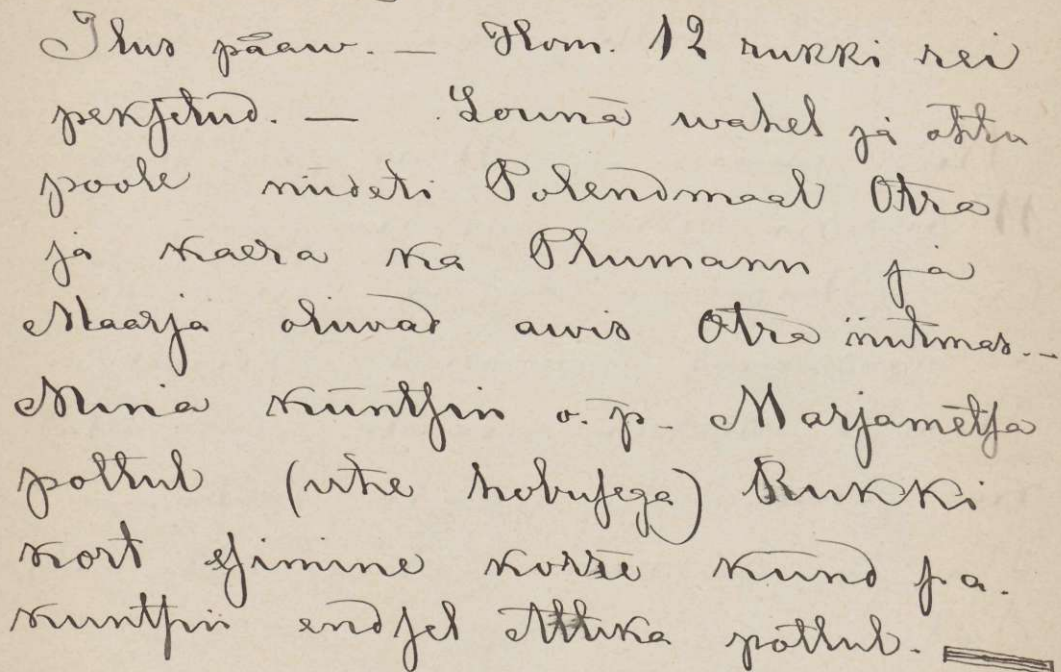 Ilus pääw. — Hom. 12 rukki rei
pekſetud. — Louna wahel ja ohtu
poole niideti Polendmaal Otra
ja kaera ka Plumann ja
Maarja oliwad awis Otra niitmas. —
Mina küntſin o. p. Marjametſa
pollul (uhe hobuſega) Rukki
kort eſimine korre künd ja.
kuntſin endſel Attika pollul.